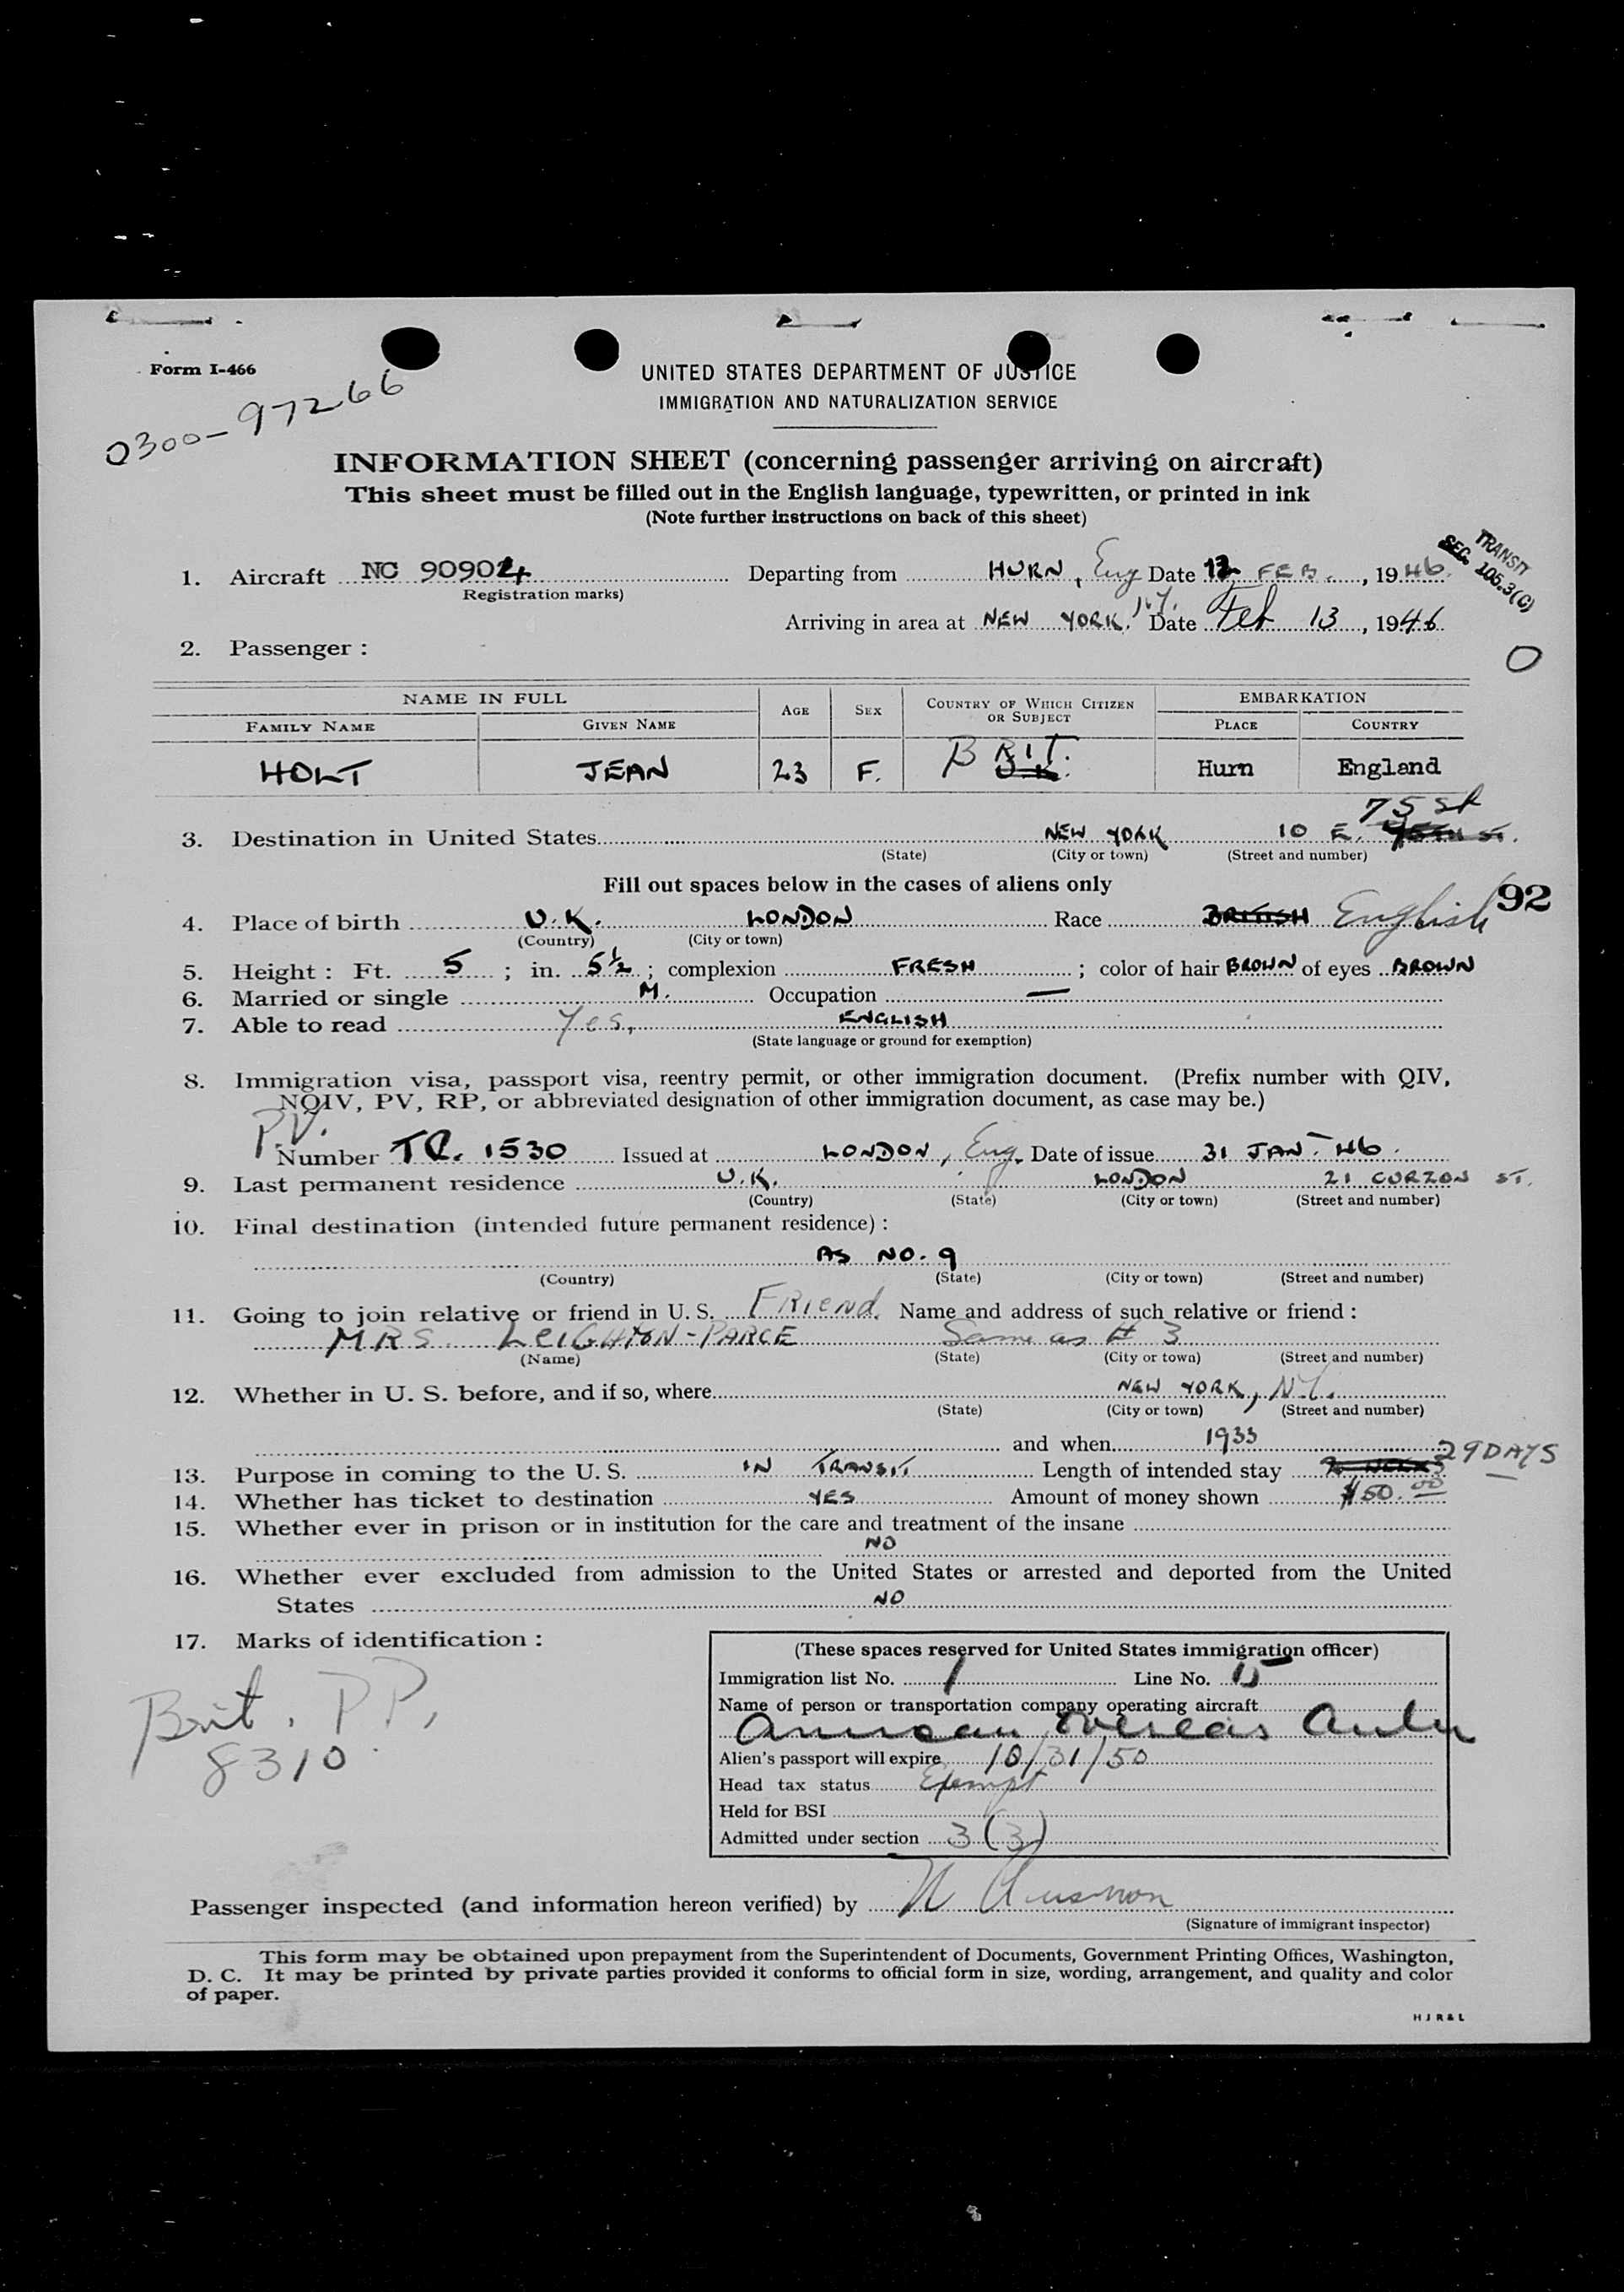 Form I-466
0300-97266
UNITED STATES DEPARTMENT OF JUSTICE
IMMIGRATION AND NATURALIZATION SERVICE
INFORMATION SHEET (concerning passenger arriving on aircraft)
This sheet must be filled out in the English language, typewritten, or printed in ink
(Note further instructions on back of this sheet)
TRANSIT
SEC. 105.3(C)
1. Aircraft NC 90904 Departing from HURN, Eng Date 12 FEB. , 1946.
(Registration marks)
Arriving in area at NEW YORK. N.Y. Date Feb 13, 1946
2. Passenger :
O
NAME IN FULL AGE SEX COUNTRY OF WHICH CITIZEN OR SUBJECT EMBARKATION
FAMILY NAME GIVEN NAME PLACE COUNTRY
HOLT JEAN 23 F. BRIT. U.K. Hurn England
75 St
3. Destination in United States NEW YORK 10 E. ST.
(State) (City or town) (Street and number)
Fill out spaces below in the cases of aliens only
92
4. Place of birth U.K. LONDON Race BRITISH English
(Country) (City or town)
5. Height : Ft. 5 ; in. 5½ ; complexion FRESH ; color of hair BROWN of eyes BROWN
6. Married or single M. Occupation —
7. Able to read Yes, ENGLISH
(State language or ground for exemption)
8. Immigration visa, passport visa, reentry permit, or other immigration document. (Prefix number with QIV,
NQIV, PV, RP, or abbreviated designation of other immigration document, as case may be.)
PV.
Number TC. 1530 Issued at LONDON, Eng. Date of issue 31 JAN. 46.
9. Last permanent residence U.K. LONDON 21 CURZON ST.
(Country) (State) (City or town) (Street and number)
10. Final destination (intended future permanent residence) :
AS NO. 9
(Country) (State) (City or town) (Street and number)
11. Going to join relative or friend in U. S. FRIEND. Name and address of such relative or friend :
MRS LEIGHTON-PARCE Same as # 3
(Name) (State) (City or town) (Street and number)
12. Whether in U. S. before, and if so, where NEW YORK, N.Y.
(State) (City or town) (Street and number)
and when 1933
13. Purpose in coming to the U. S. IN TRANSIT. Length of intended stay 29 DAYS
14. Whether has ticket to destination YES Amount of money shown $50.00
15. Whether ever in prison or in institution for the care and treatment of the insane
NO
16. Whether ever excluded from admission to the United States or arrested and deported from the United
States NO
17. Marks of identification :
Brit. PP.
8310
(These spaces reserved for United States immigration officer)
Immigration list No. 1 Line No. 15
Name of person or transportation company operating aircraft
American Overseas
Alien's passport will expire 10/31/50
Head tax status Exempt
Held for BSI
Admitted under section 3(3)
Passenger inspected (and information hereon verified) by
(Signature of immigrant inspector)
This form may be obtained upon prepayment from the Superintendent of Documents, Government Printing Offices, Washington,
D. C. It may be printed by private parties provided it conforms to official form in size, wording, arrangement, and quality and color
of paper.
H J R & L